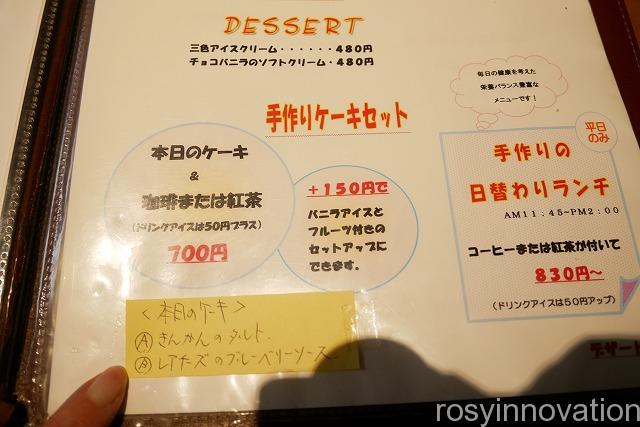 DESSERT
三色アイスクリーム・・・・・・480円
チョコバニラのソフトクリーム・480円
毎日の健康を考えた
栄養バランス豊富な
メニューです！
手作りケーキセット
本日のケーキ
&
珈琲または紅茶
(ドリンクアイスは50円プラス)
700円
+150円で
バニラアイスと
フルーツ付きの
セットアップに
できます。
平日
のみ
手作りの
日替わりランチ
AM11：45~PM2：00
コーヒーまたは紅茶が付いて
830円~
(ドリンクアイスは50円アップ)
<本日のケーキ>
Ⓐ きんかんのタルト.
Ⓑ レアチーズのブルーベリーソース.
デザート
rosyinnovation